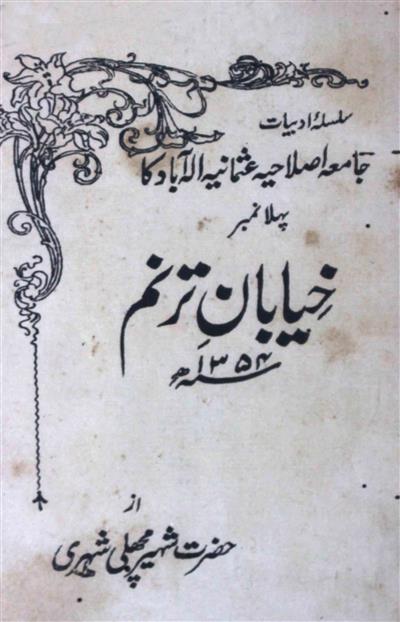 سلسلۂ ادبیات
جامعہ اصلاحیہ عثمانیہ الہ آباد کا
پہلا نمبر
خیابانِ ترنم
سنہ ۱۳۵۴ھ
از
حضرت شہیر مچھلی شہری